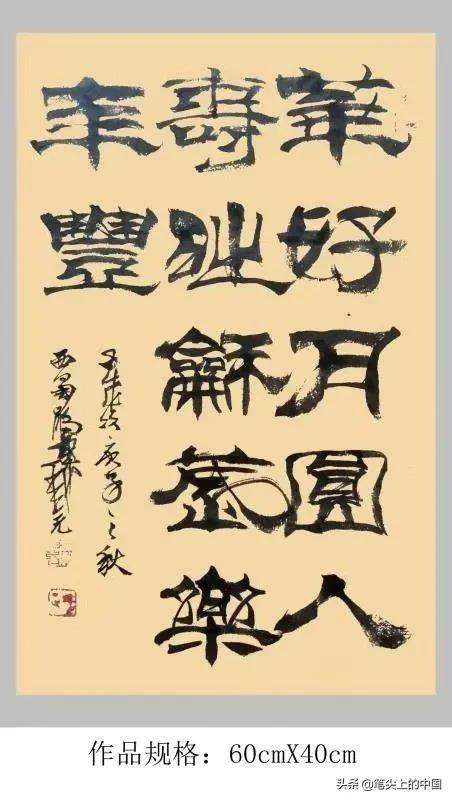 華好月圓人
壽世龢歲樂
年豐
庚子之秋
作品规格：60cmX40cm
头条 @笔尖上的中国